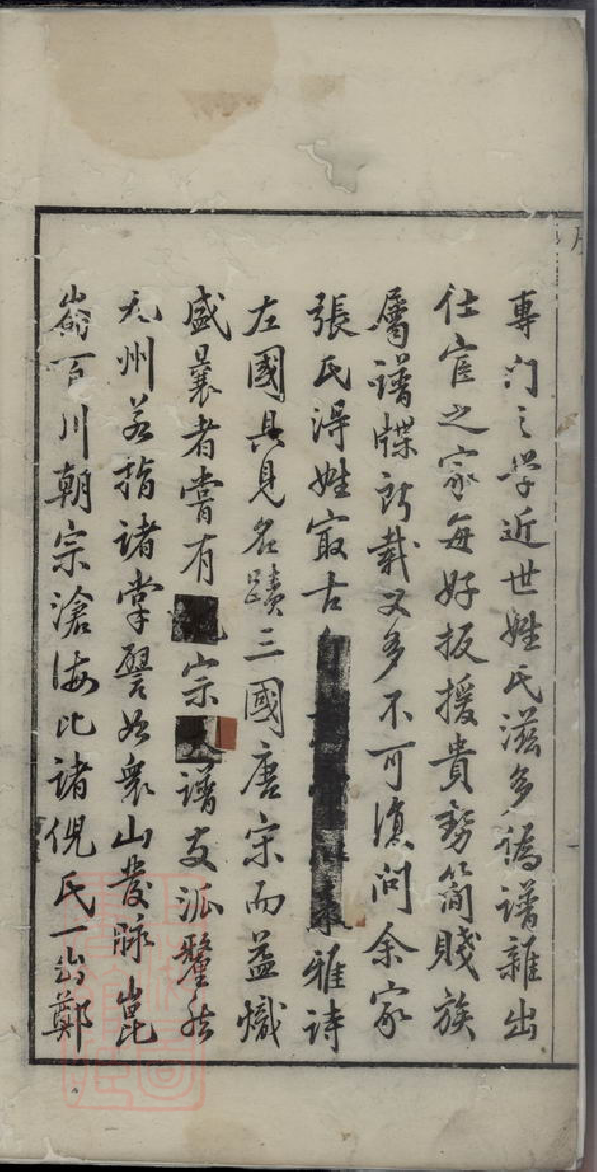 專門之學近世姓氏滋多譌譜雜出
仕宦之家每好扳援貴勢簡賤族
屬譜牒所載又多不可復問余家
張氏得姓㝡古雅詩
左國具見名蹟三國唐宋而益熾
盛曩者嘗有宗譜支派釐然
九州若指諸掌譬如衆山發脉崑
崙百川朝宗滄海比諸倪氏一翁鄭